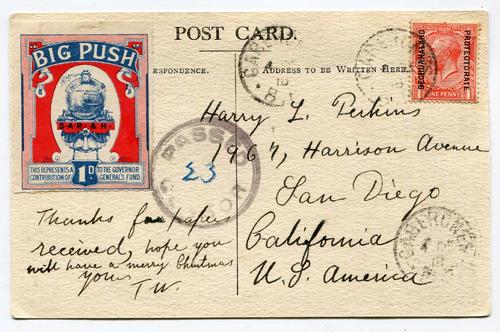 POST CARD.
BIG PUSH
S.A.R. & H.
THIS REPRESENTS A CONTRIBUTION OF
1D
TO THE GOVERNOR GENERAL'S FUND.
RESPONDENCE.
ADDRESS TO BE WRITTEN HERE.
BECHUANALAND PROTECTORATE
ONE PENNY
PASSED
23
Harry L. Perkins
1967, Harrison Avenue
San Diego
California
U.S. America
Thanks for papers
received, hope you
will have a merry Christmas
yours
T.W.
GABERONES